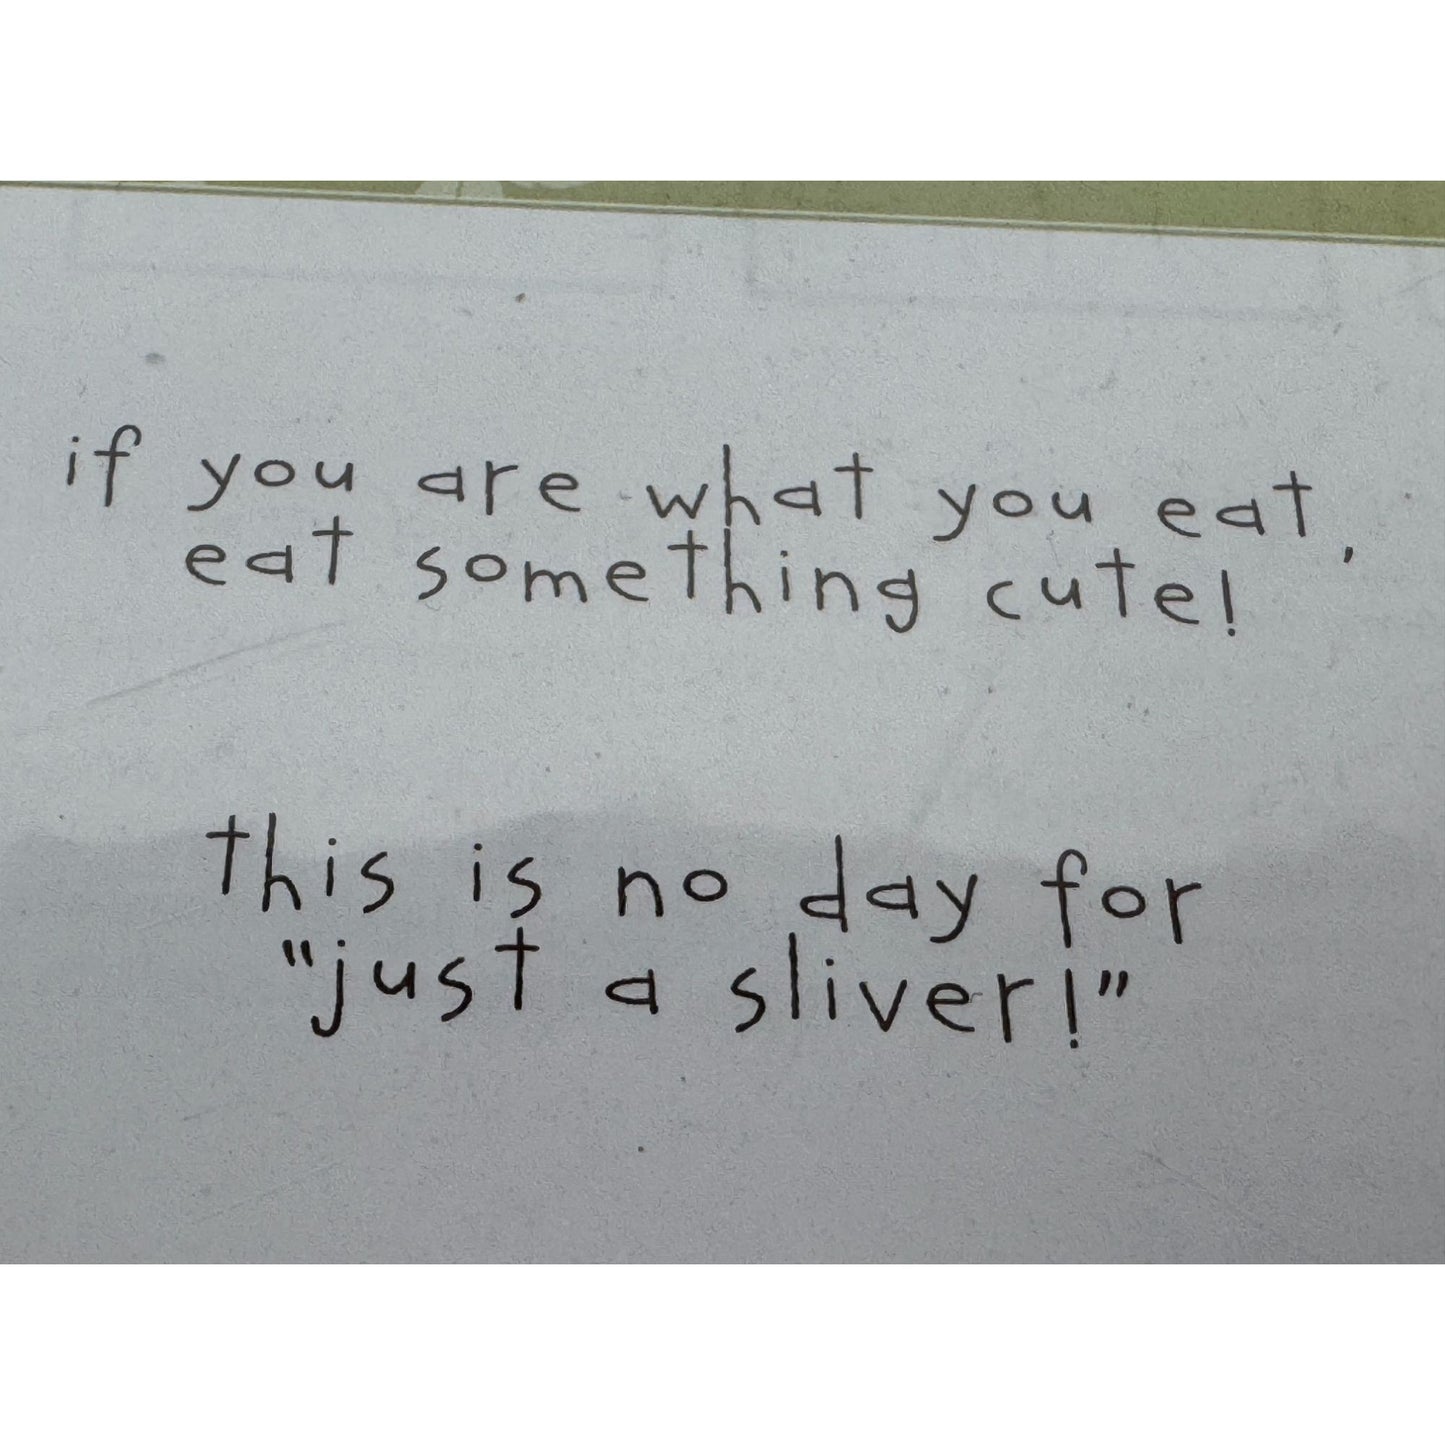 if you are what you eat,
eat something cute!
this is no day for
"just a sliver!"